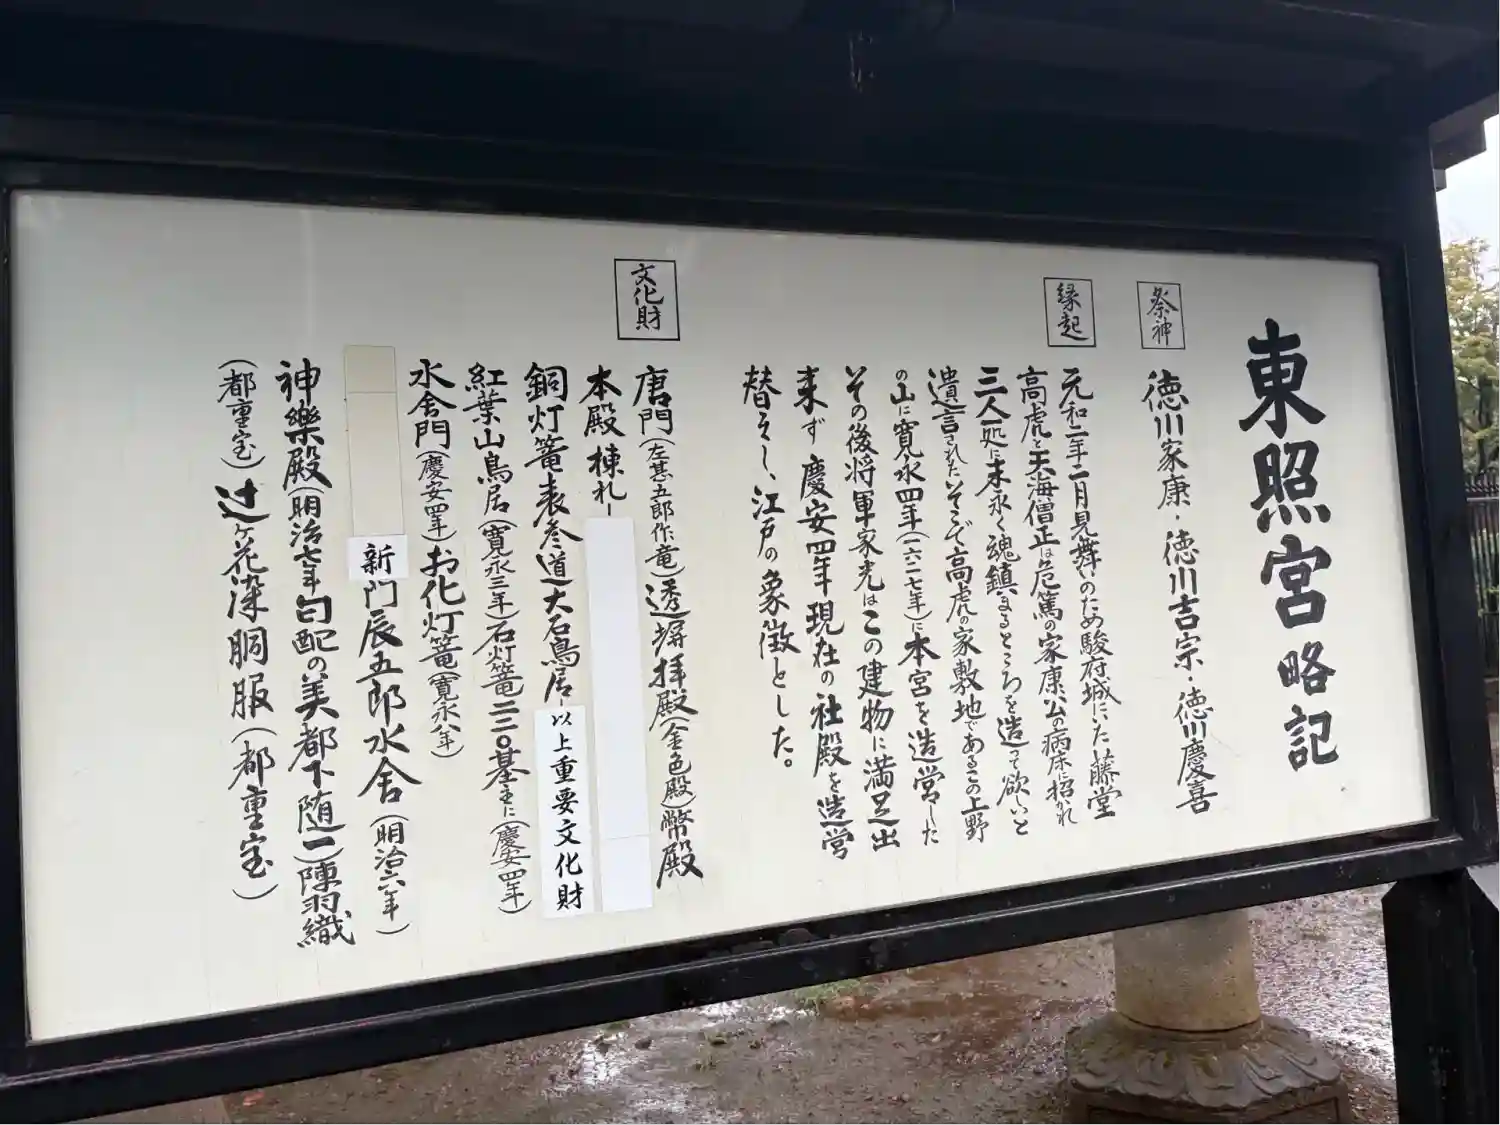 東照宮略記
祭神
徳川家康・徳川吉宗・徳川慶喜
縁起
元和二年二月見舞いのため駿府城にいた藤堂
高虎と天海僧正は危篤の家康公の病床に招かれ
三人一処に末永く魂鎮まるところを造って欲しいと
遺言されたいそこで高虎の家敷地であるこの上野
の山に寛永四年(一六二七年)に本宮を造営した
その後将軍家光はこの建物に満足出
来ず慶安四年現在の社殿を造営
替えし、江戸の象徴とした。
文化財
唐門(左甚五郎作竜)透塀拝殿(金色殿)幣殿
本殿棟札一
銅灯篭表参道大石鳥居以上重要文化財
紅葉山鳥居(寛永三年)石灯篭二二〇基主に(慶安四年)
水舎門(慶安四年)お化灯篭(寛永八年)
新門辰五郎水舎(明治六年)
神樂殿(明治七年勾配の美都下随一)陣羽織
(都重宝)辻ヶ花染胴服(都重宝)